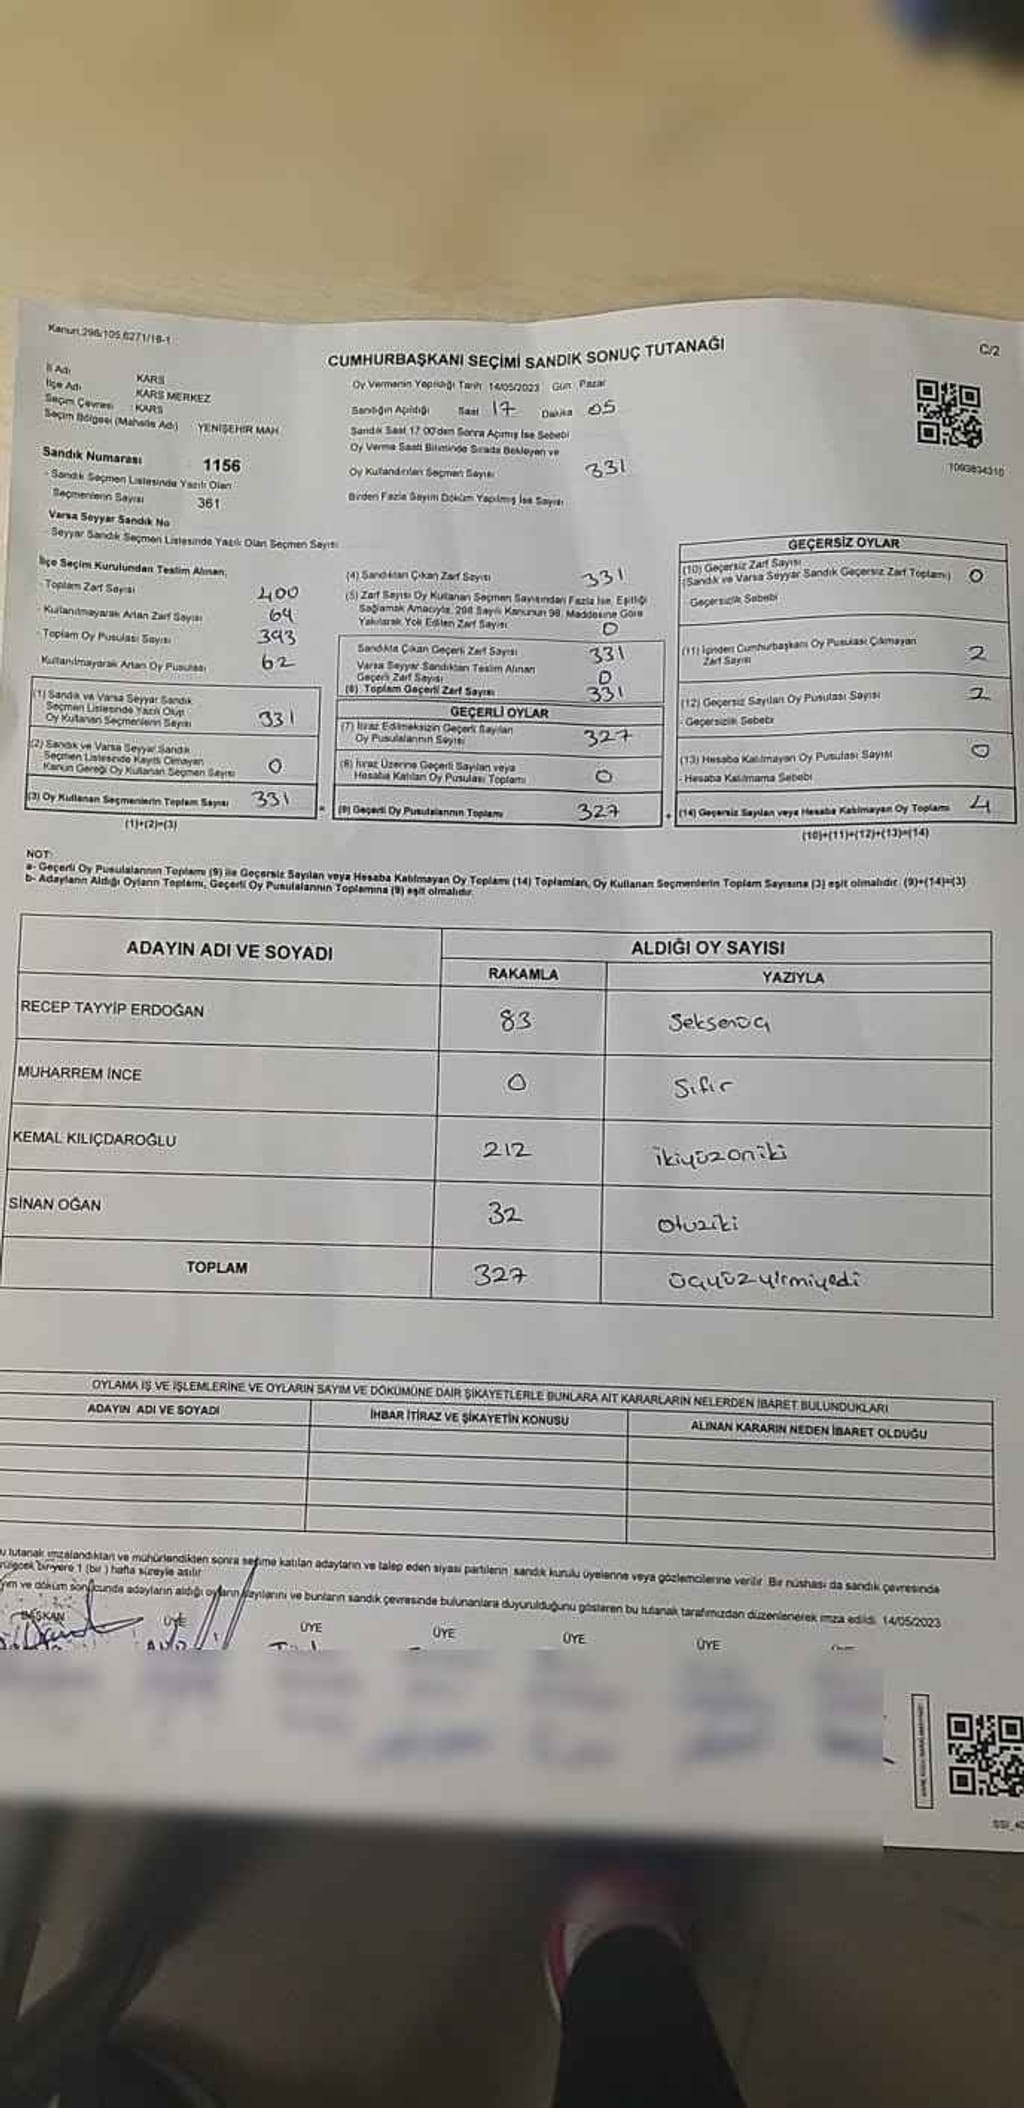 Kanun.298/105,6271/18-1
CUMHURBAŞKANI SEÇİMİ SANDIK SONUÇ TUTANAĞI
C/2
İl Adı KARS
İlçe Adı KARS MERKEZ
Seçim Çevresi KARS
Seçim Bölgesi (Mahalle Adı) YENİŞEHİR MAH.
Oy Vermenin Yapıldığı Tarih 14/05/2023 Gün Pazar
Sandığın Açıldığı Saat 17 Dakika 05
Sandık Saat 17:00'den Sonra Açılmış İse Sebebi
Oy Verme Saati Bitiminde Sırada Bekleyen ve
Oy Kullandırılan Seçmen Sayısı 331
Birden Fazla Sayım Döküm Yapılmış İse Sayısı
1093834310
Sandık Numarası 1156
- Sandık Seçmen Listesinde Yazılı Olan
Seçmenlerin Sayısı 361
Varsa Seyyar Sandık No
Seyyar Sandık Seçmen Listesinde Yazılı Olan Seçmen Sayısı
İlçe Seçim Kurulundan Teslim Alınan;
- Toplam Zarf Sayısı 400
- Kullanılmayarak Artan Zarf Sayısı 64
- Toplam Oy Pusulası Sayısı 393
Kullanılmayarak Artan Oy Pusulası 62
(1) Sandık ve Varsa Seyyar Sandık
Seçmen Listesinde Yazılı Olup
Oy Kullanan Seçmenlerin Sayısı 331
(2) Sandık ve Varsa Seyyar Sandık
Seçmen Listesinde Kayıtlı Olmayan
Kanun Gereği Oy Kullanan Seçmen Sayısı 0
(3) Oy Kullanan Seçmenlerin Toplam Sayısı 331
(1)+(2)=(3)
(4) Sandıktan Çıkan Zarf Sayısı 331
(5) Zarf Sayısı Oy Kullanan Seçmen Sayısından Fazla İse, Eşitliği
Sağlamak Amacıyla, 298 Sayılı Kanunun 98. Maddesine Göre
Yakılarak Yok Edilen Zarf Sayısı 0
Sandıkta Çıkan Geçerli Zarf Sayısı 331
Varsa Seyyar Sandıktan Teslim Alınan
Geçerli Zarf Sayısı 0
(6) Toplam Geçerli Zarf Sayısı 331
GEÇERLİ OYLAR
(7) İtiraz Edilmeksizin Geçerli Sayılan
Oy Pusulalarının Sayısı 327
(8) İtiraz Üzerine Geçerli Sayılan veya
Hesaba Katılan Oy Pusulası Toplamı 0
(9) Geçerli Oy Pusulalarının Toplamı 327
GEÇERSİZ OYLAR
(10) Geçersiz Zarf Sayısı
(Sandık ve Varsa Seyyar Sandık Geçersiz Zarf Toplamı) 0
- Geçersizlik Sebebi
(11) İçinden Cumhurbaşkanı Oy Pusulası Çıkmayan
Zarf Sayısı 2
(12) Geçersiz Sayılan Oy Pusulası Sayısı 2
- Geçersizlik Sebebi
(13) Hesaba Katılmayan Oy Pusulası Sayısı 0
- Hesaba Katılmama Sebebi
(14) Geçersiz Sayılan veya Hesaba Katılmayan Oy Toplamı 4
(10)+(11)+(12)+(13)=(14)
NOT:
a- Geçerli Oy Pusulalarının Toplamı (9) ile Geçersiz Sayılan veya Hesaba Katılmayan Oy Toplamı (14) Toplamları, Oy Kullanan Seçmenlerin Toplam Sayısına (3) eşit olmalıdır. (9)+(14)=(3)
b- Adayların Aldığı Oyların Toplamı, Geçerli Oy Pusulalarının Toplamına (9) eşit olmalıdır.
ADAYIN ADI VE SOYADI ALDIĞI OY SAYISI
RAKAMLA YAZIYLA
RECEP TAYYİP ERDOĞAN 83 Seksenüç
MUHARREM İNCE 0 Sıfır
KEMAL KILIÇDAROĞLU 212 ikiyüzoniki
SİNAN OĞAN 32 Otuziki
TOPLAM 327 üçyüzyirmiyedi
OYLAMA İŞ VE İŞLEMLERİNE VE OYLARIN SAYIM VE DÖKÜMÜNE DAİR ŞİKAYETLERLE BUNLARA AİT KARARLARIN NELERDEN İBARET BULUNDUKLARI
ADAYIN ADI VE SOYADI İHBAR İTİRAZ VE ŞİKAYETİN KONUSU ALINAN KARARIN NEDEN İBARET OLDUĞU
u tutanak imzalandıktan ve mühürlendikten sonra seçime katılan adayların ve talep eden siyasi partilerin sandık kurulu üyelerine veya gözlemcilerine verilir. Bir nüshası da sandık çevresinde
rülecek bir yere 1 (bir) hafta süreyle asılır.
yım ve döküm sonucunda adayların aldığı oyların sayılarını ve bunların sandık çevresinde bulunanlara duyurulduğunu gösteren bu tutanak tarafımızdan düzenlenerek imza edildi. 14/05/2023
BAŞKAN ÜYE ÜYE ÜYE ÜYE ÜYE